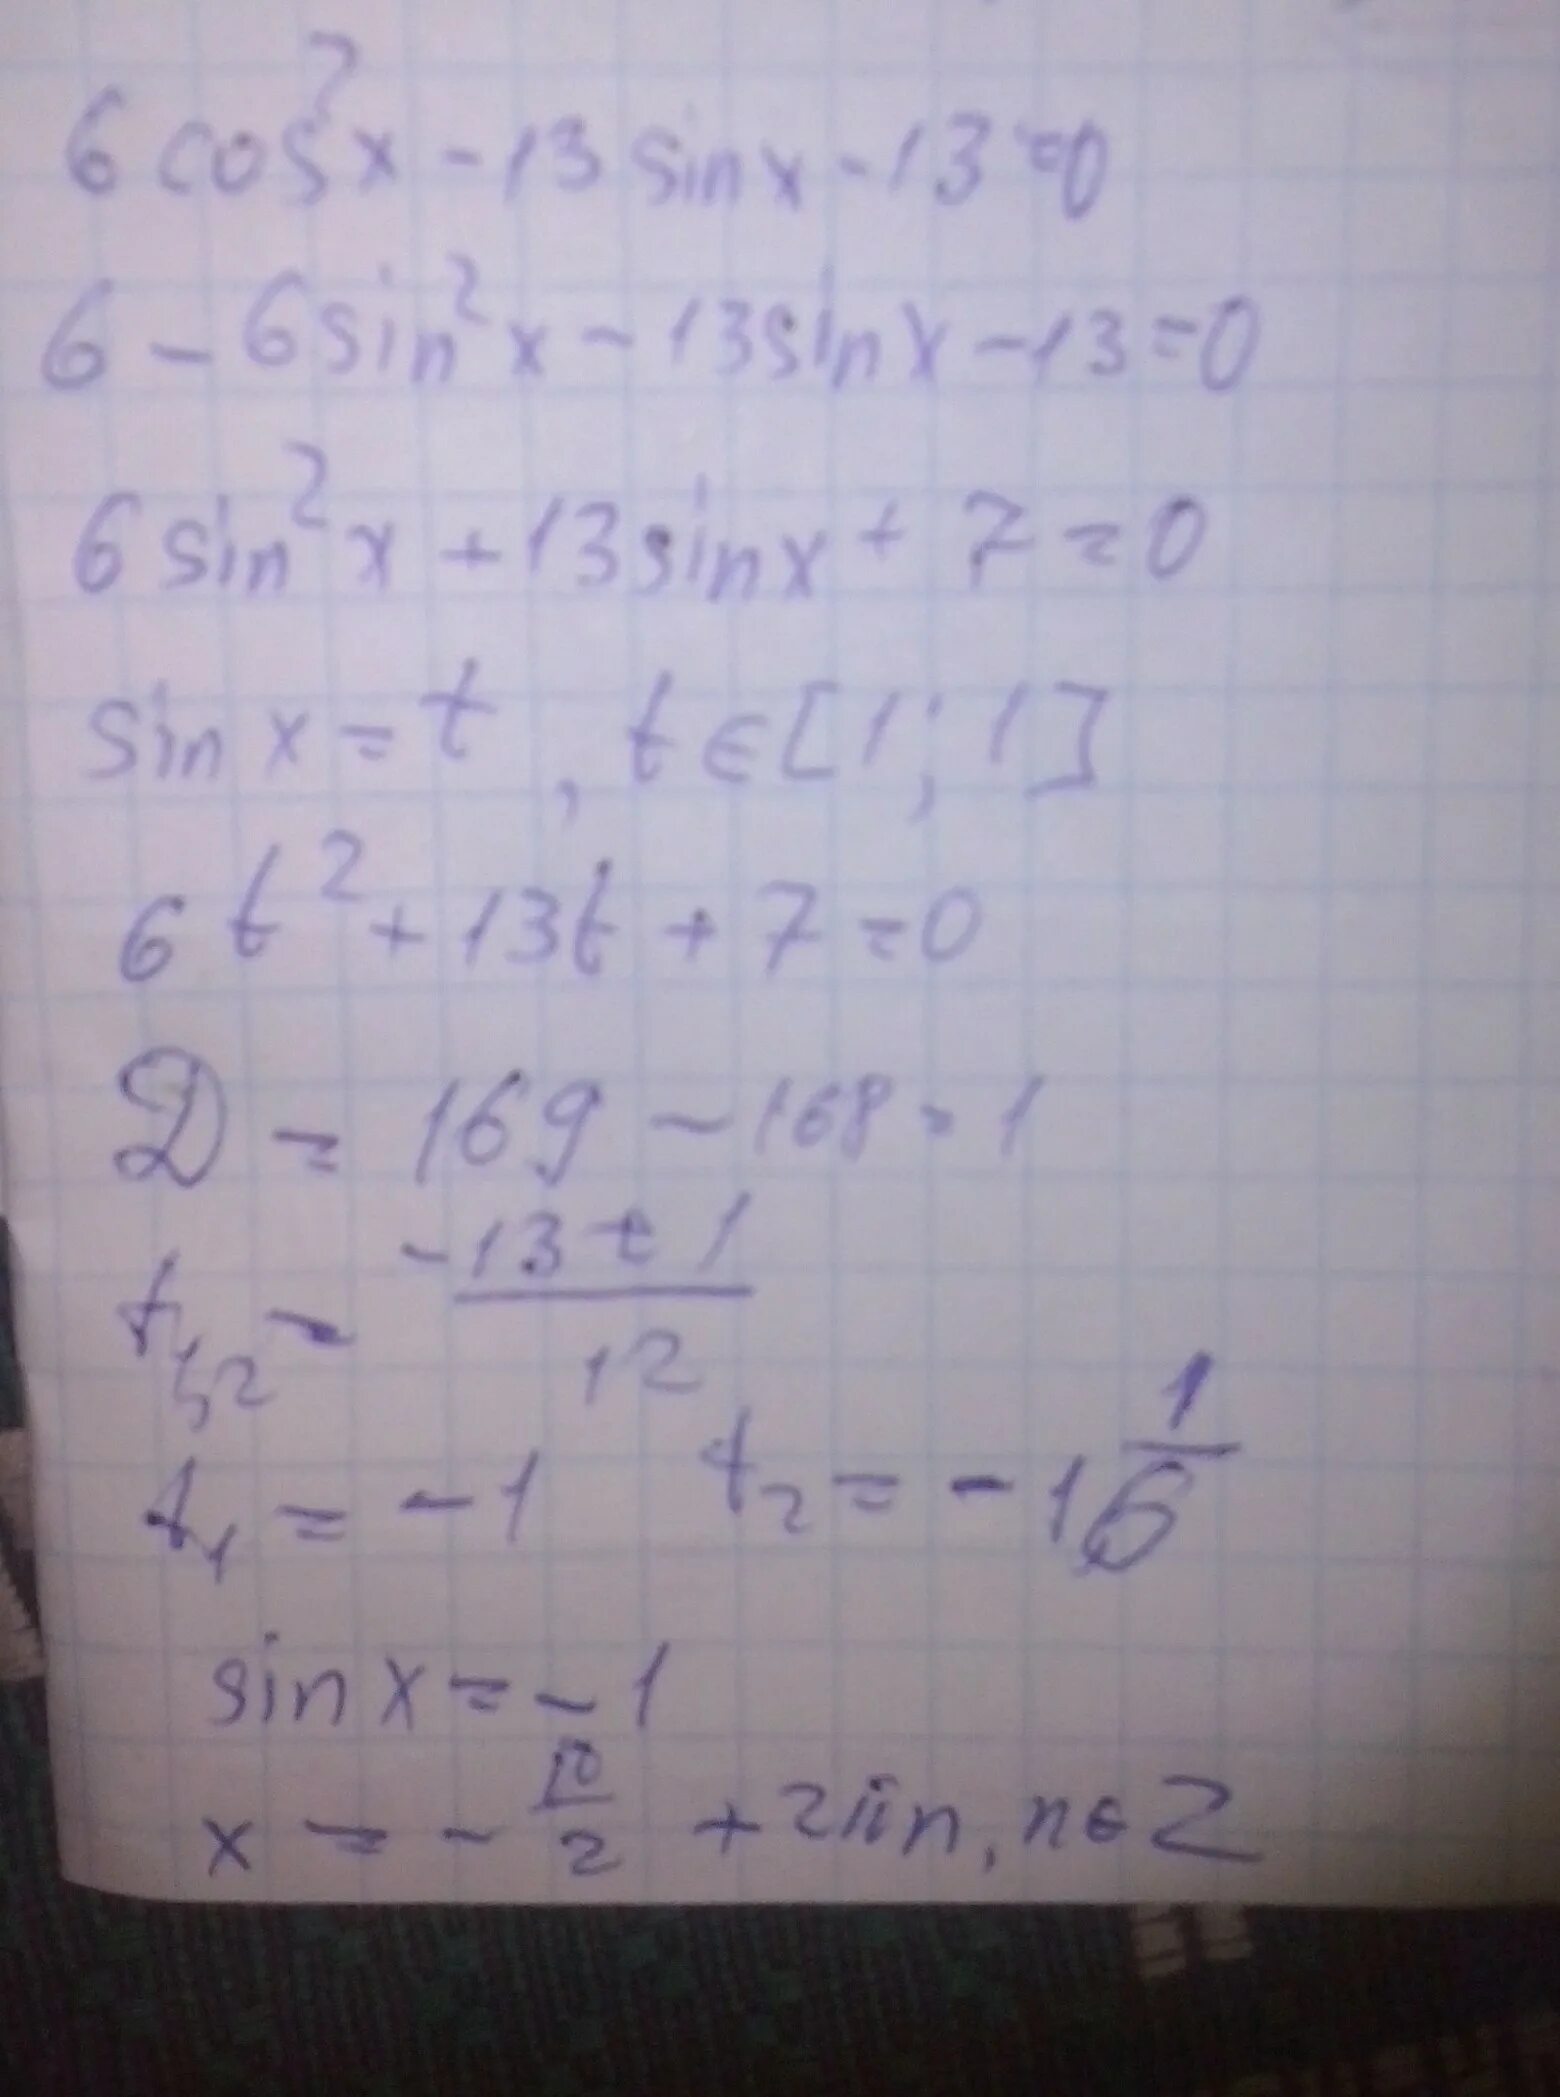 6cos²x - 13sinx - 13 = 0
6 - 6sin²x - 13sinx - 13 = 0
6sin²x + 13sinx + 7 = 0
sinx = t, t ∈ [1; 1]
6t² + 13t + 7 = 0
D = 169 - 168 = 1
t₁,₂ = (-13 ± 1)/12
t₁ = -1 t₂ = -1 1/6
sinx = -1
x = -π/2 + 2πn, n ∈ Z